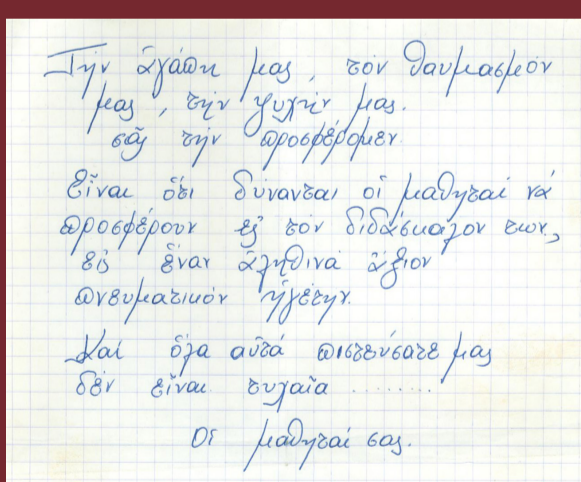 Τήν ἀγάπη μας, τόν θαυμασμόν
μας, τήν ψυχήν μας.
σᾶς τήν προσφέρομεν.
Εἶναι ὅτι δύνανται οἱ μαθηταί νά
προσφέρουν εἰς τόν διδάσκαλον των,
εἰς ἕναν ἀληθινά ἄξιον
πνευματικόν ἡγέτην.
Καί ὅλα αὐτά πιστεύσατέ μας
δέν εἶναι τυχαῖα ........
Οἱ μαθηταί σας.